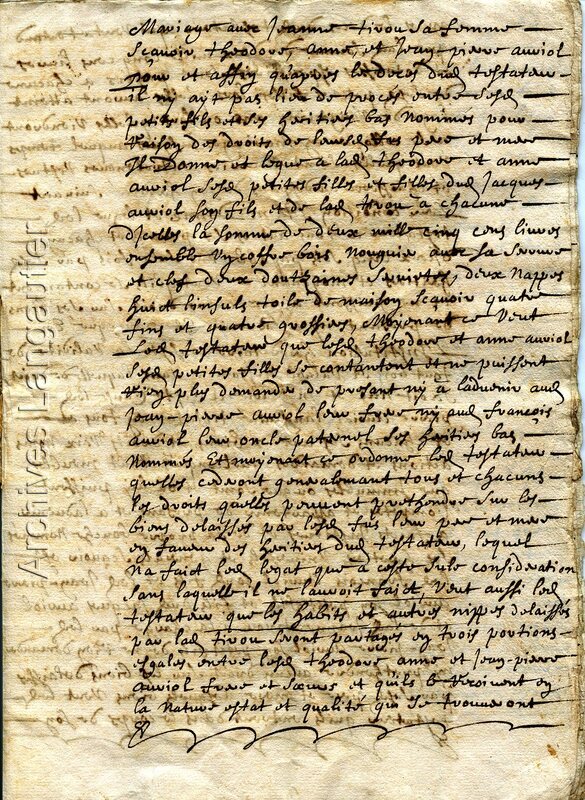 Mariage avec Jeanne tirou sa femme
Scavoir theodore, anne, et Jean-pierre auriol
pour et affin quapres le deces dud testateur
il ny ayt pas lieu de proces entre sesd
petits fils et ses heritiers bas Nommes pour
Raison des droits de leursd fus pere et mere
Il donne et legue a lad theodore et anne
auriol sesd petites filles et filles dud Jacques
auriol son fils et de lad tirou a chacune
dicelles la somme de deux mille cinq cens livres
ensemble un coffre bois Nouguie avec sa serrure
et clef deux doutzaines serviettes, deux Nappes
huict linsuls toile de maison scavoir quatre
fins et quatre grossiers, Moyenant ce Veut
Led testateur que lesd theodore et anne auriol
sesd petites filles se contantent et ne puissent
Rien plus demander de presant ny a ladvenir aud
Jean-pierre auriol leur frere ny aud francois
auriol leur oncle paternel ses heritiers bas
Nommes Et moyenant ce ordonne led testateur
quelles cederont generalemant tous et chacuns
les droits quelles peuvent prethendre sur les
biens delaisses par lesd fus leur pere et mere
en faveur des heritiers dud testateur, lequel
na faict led legat que a ceste sule consideration
sans laquelle il ne lauroit faict, Veut aussi led
testateur que les habits et autres nippes delaisses
par lad tirou seront partages en trois portions
esgales entre lesd theodore anne et Jean-pierre
auriol frere et soeurs et quils le Recoivent en
la Nature estat et qualite qui se trouveront
Archives Langautier